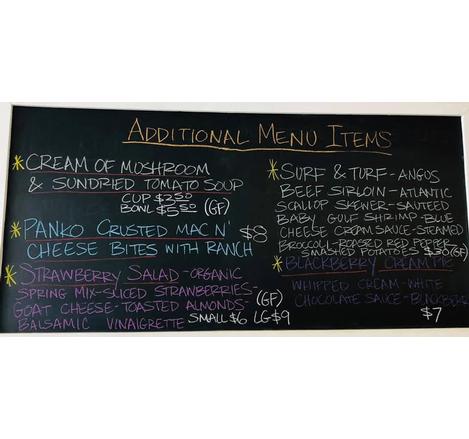 ADDITIONAL MENU ITEMS
CREAM OF MUSHROOM
& SUNDRIED TOMATO SOUP
CUP $2.50
BOWL $5.50 (GF)
PANKO CRUSTED MAC N'
CHEESE BITES WITH RANCH $8
STRAWBERRY SALAD-ORGANIC
SPRING MIX-SLICED STRAWBERRIES-
GOAT CHEESE-TOASTED ALMONDS- (GF)
BALSAMIC VINAIGRETTE SMALL $6 LG $9
SURF & TURF-ANGUS
BEEF SIRLOIN-ATLANTIC
SCALLOP SKEWER-SAUTEED
BABY GULF SHRIMP-BLUE
CHEESE CREAM SAUCE-STEAMED
BROCCOLI-ROASTED RED PEPPER
SMASHED POTATOES (GF)
BLACKBERRY CREAM PIE
WHIPPED CREAM-WHITE
CHOCOLATE SAUCE-BLACKBERR
$7